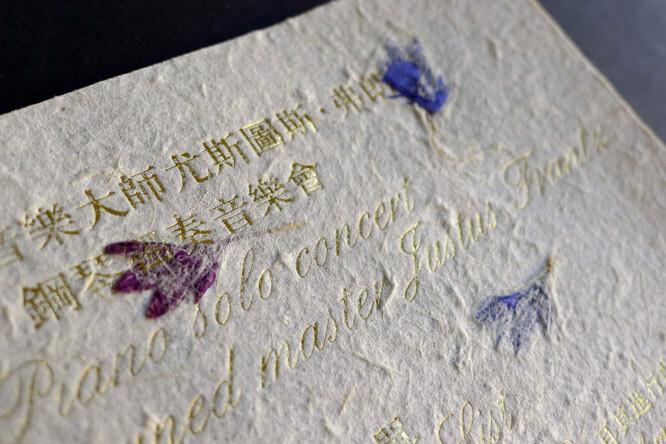 音樂大師尤斯圖斯·弗朗
鋼琴獨奏音樂會
Piano solo concert
master Justus Frantz
單 list